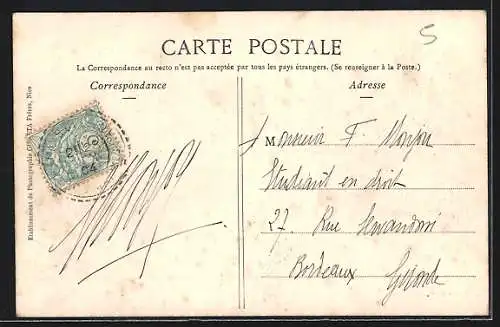 5
CARTE POSTALE
La Correspondance au recto n'est pas acceptée par tous les pays étrangers. (Se renseigner à la Poste.)
Correspondance
Adresse
Etablissement de Photographie Frères, Nice
04
Monsieur F. Monjou
Etudiant en droit
27 Rue Servandoni
Bordeaux Gironde